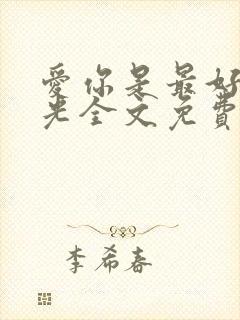 愛你是最好
光全文免費
李希春